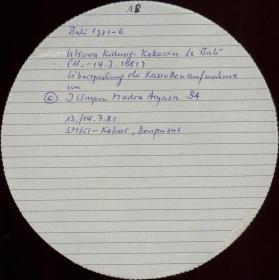 18
Bali 1981-6
Utsava Kidung-Kekavin se Bali
(11.-14.3.1981)
Überspielung der Kassettenaufnahme
von
© I Wayan Madra Aryasa BA
13./14.7.81
SMKI-Kokar, Denpasar